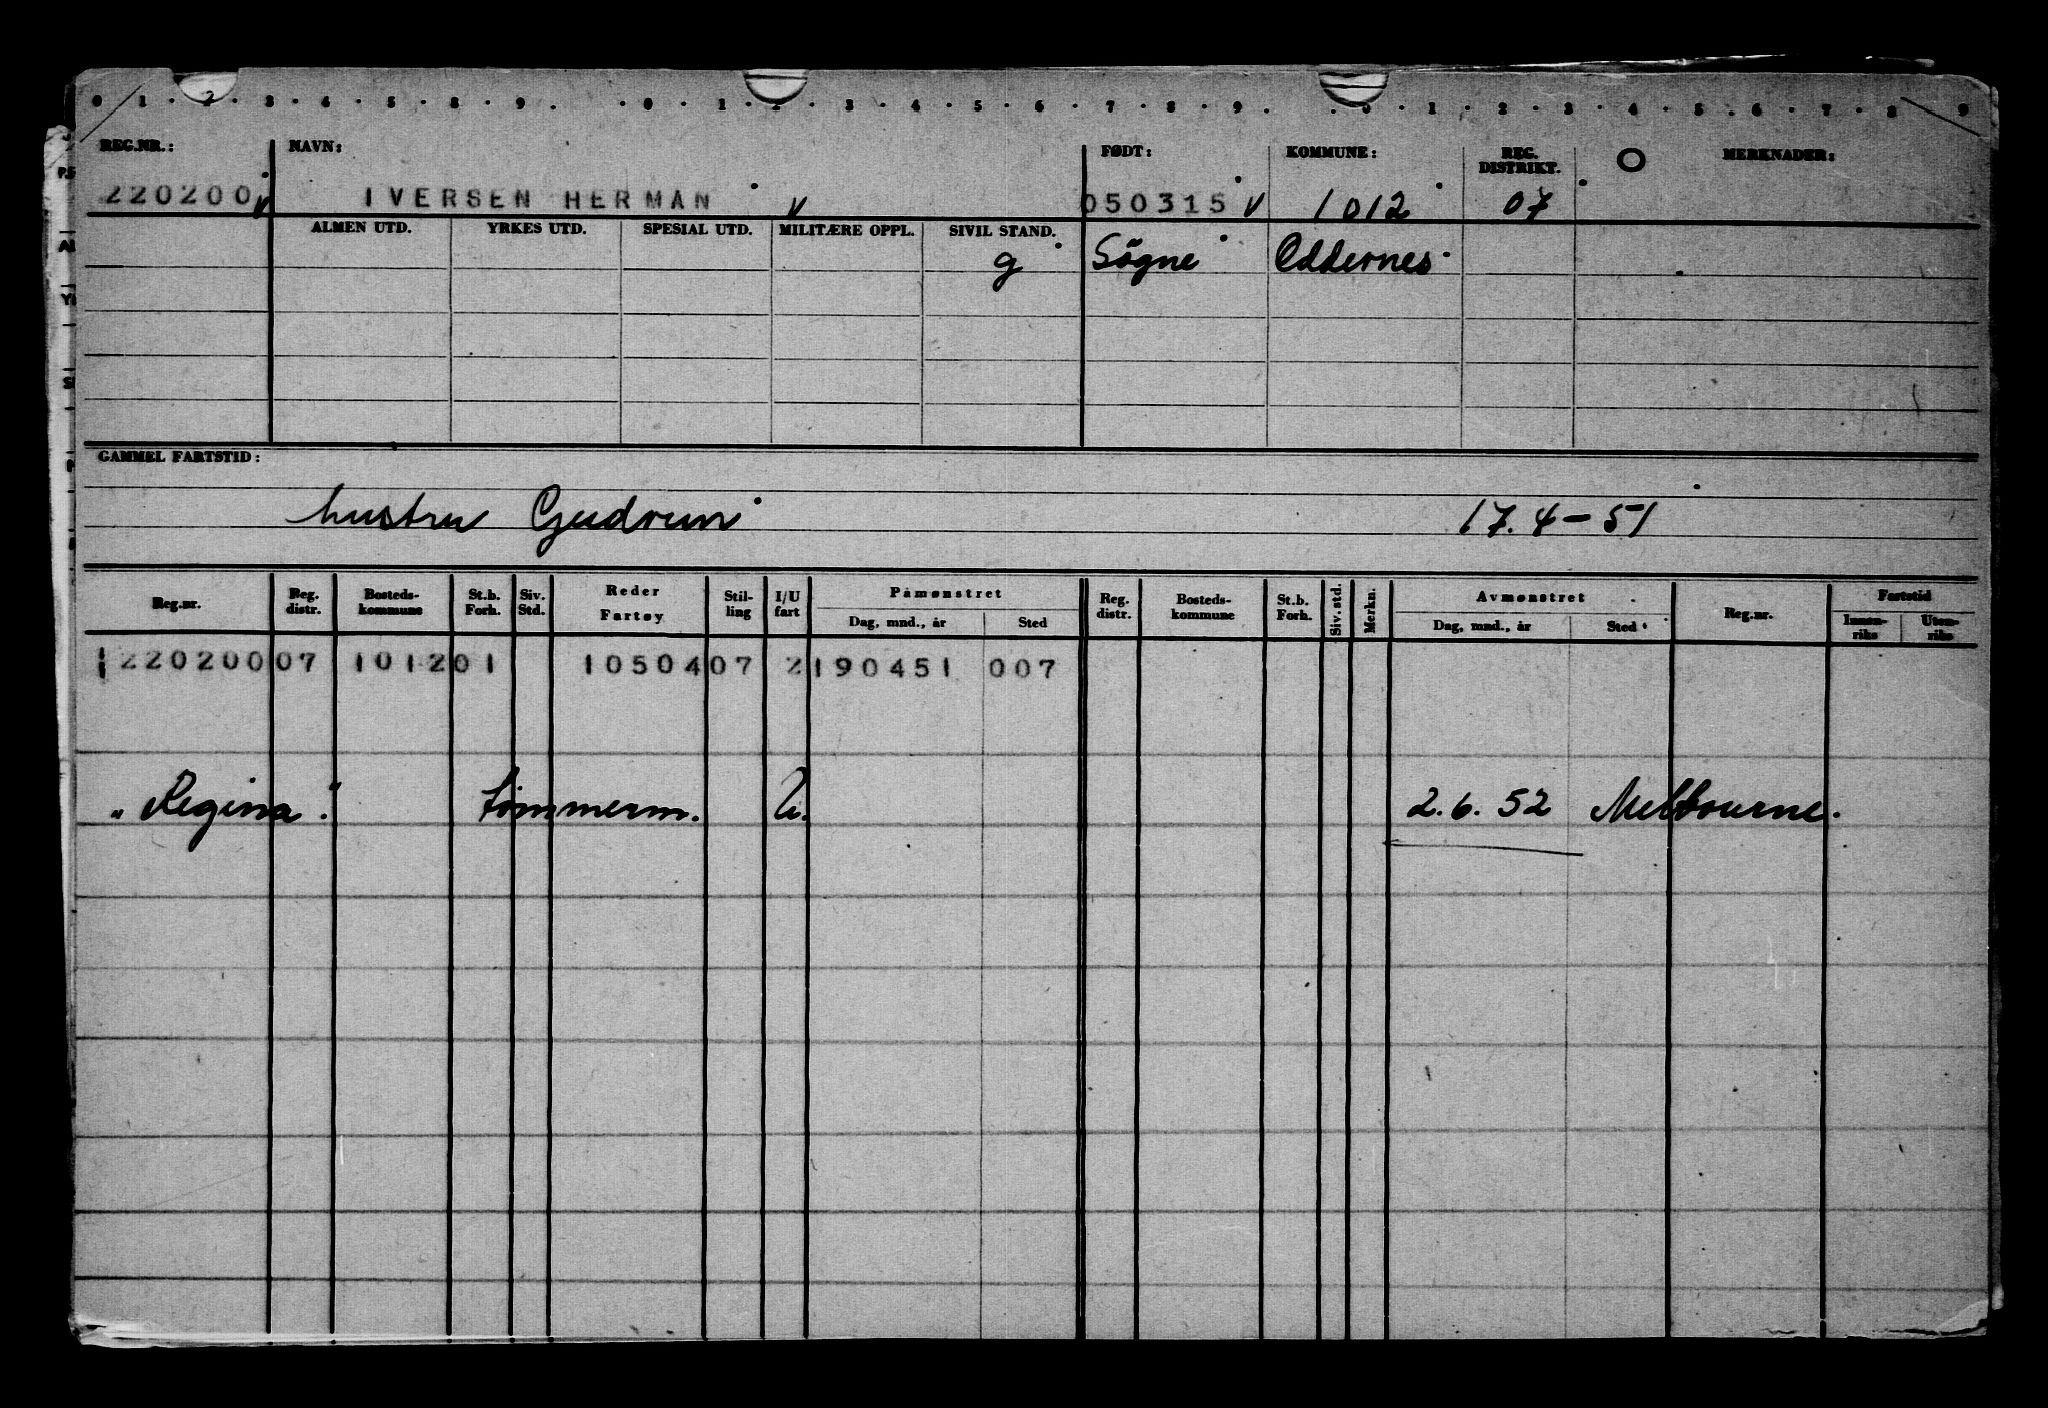 0 1 2 3 4 5 8 9 0 1 2 3 4 5 6 7 8 9 0 1 2 3 4 5 6 7 8 9
REG.NR.: NAVN: FØDT: KOMMUNE: REG. DISTRIKT. MERKNADER:
220200 v IVERSEN HERMAN v 050315 v 1012 07
ALMEN UTD. YRKES UTD. SPESIAL UTD. MILITÆRE OPPL. SIVIL STAND.
g Søgne Oddernes
GAMMEL FARTSTID:
hustru Gudrun 17.4-51
Reg.nr. Reg. distr. Bosteds-kommune St.b. Forh. Siv. Std. Reder Fartøy Stil-ling I/U fart Påmønstret Reg. distr. Bosteds-kommune St.b. Forh. Siv. std. Merkn. Avmønstret Reg.nr. Fartstid
Dag, mnd., år Sted Dag, mnd., år Sted Innen-riks Uten-riks
220200 07 1012 01 10504 07 2 190451 007
"Regina". tømmerm. U. 2.6.52 Melbourne.